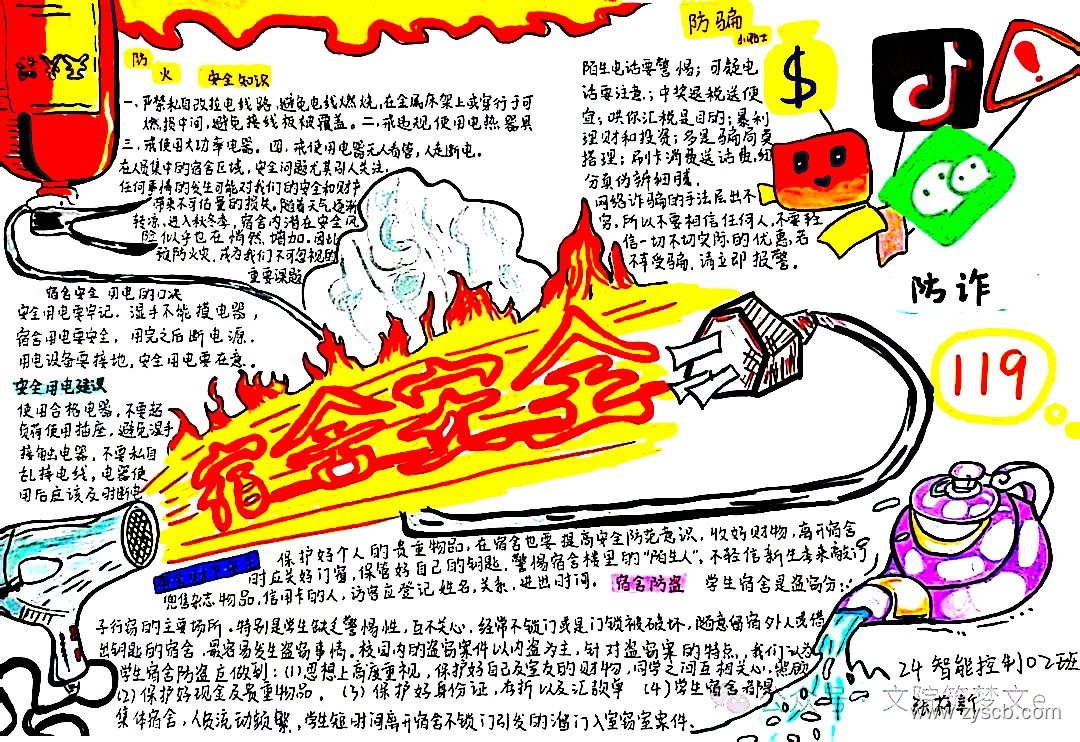 防火
安全知识
一、严禁私自改拉电线路，避免电线燃烧，在金属床架上或穿行于可
燃损中间，避免接线板被覆盖。二、戒违规使用电热器具
三、戒使用大功率电器。四、戒使用电器无人看管，人走断电。
在人员集中的宿舍区域，安全问题尤其引人关注，
任何事情的发生可能对我们的安全和财产
带来不可估量的损失。随着天气逐渐
转凉，进入秋冬季，宿舍内潜在安全风
险似乎也在悄然增加。因此
致防火灾，成为我们不可忽视的
重要课题
宿舍安全用电的口诀
安全用电要牢记，湿手不能摸电器，
宿舍用电要安全，用完之后断电源，
用电设备要接地，安全用电要在意。
安全用电建议
使用合格电器，不要超
负荷使用插座，避免湿手
接触电器，不要私自
乱接电线，电器使
用后应该及时断电
防骗
小贴士
陌生电话要警惕；可疑电
话要注意；中奖退税送便
宜；哄你汇税是目的；暴利
理财和投资；多是骗局莫
搭理；刷卡消费送话费，细
分真伪新细腰
网络诈骗的手法层出不
穷，所以不要相信任何人，不要轻
信一切不切实际的优惠，若
不幸受骗，请立即报警。
$
!
防诈
119
宿舍安全
保护好个人的贵重物品，在宿舍也要提高安全防范意识，收好财物，离开宿舍
时应关好门窗，保管好自己的钥匙。警惕宿舍楼里的“陌生人”，不轻信新生
物品，信用卡的人，访客应登记姓名，关系，进出时间。
宿舍防盗
学生宿舍是盗窃分
子行窃的主要场所。特别是学生缺乏警惕性，互不关心，经常不锁门或是门锁被破坏，随意留宿外人或借
出钥匙的宿舍，最容易发生盗窃事情。校园内的盗窃案件以内盗为主，针对盗窃案的特点，我们认为
学生宿舍防盗应做到：(1)思想上高度重视，保护好自己及室友的财物，同学之间互相关心，
(2)保护好现金及贵重物品。(3)保护好身份证，存折以及汇款单 (4)学生宿舍
集体宿舍，人员流动频繁，学生短时间离开宿舍不锁门引发的溜门入室窃室案件。
24智能控制02班
www.zyscb.com